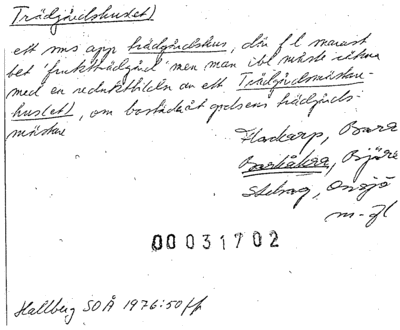 Trädgårdshuset)
ett sms app trädgårdshus, där f l marast
bet 'fruktträdgård' men man ibl måste räkna
med en reduktion ur ett Trädgårdsmästare-
huset), om bostad åt godsens trädgårds-
mästare
Flackarp, Bara
Barkåkra, Bjäre
Stehag, Onsjö
m-fl
00031702
Hallberg SOÅ 1976:50 ff